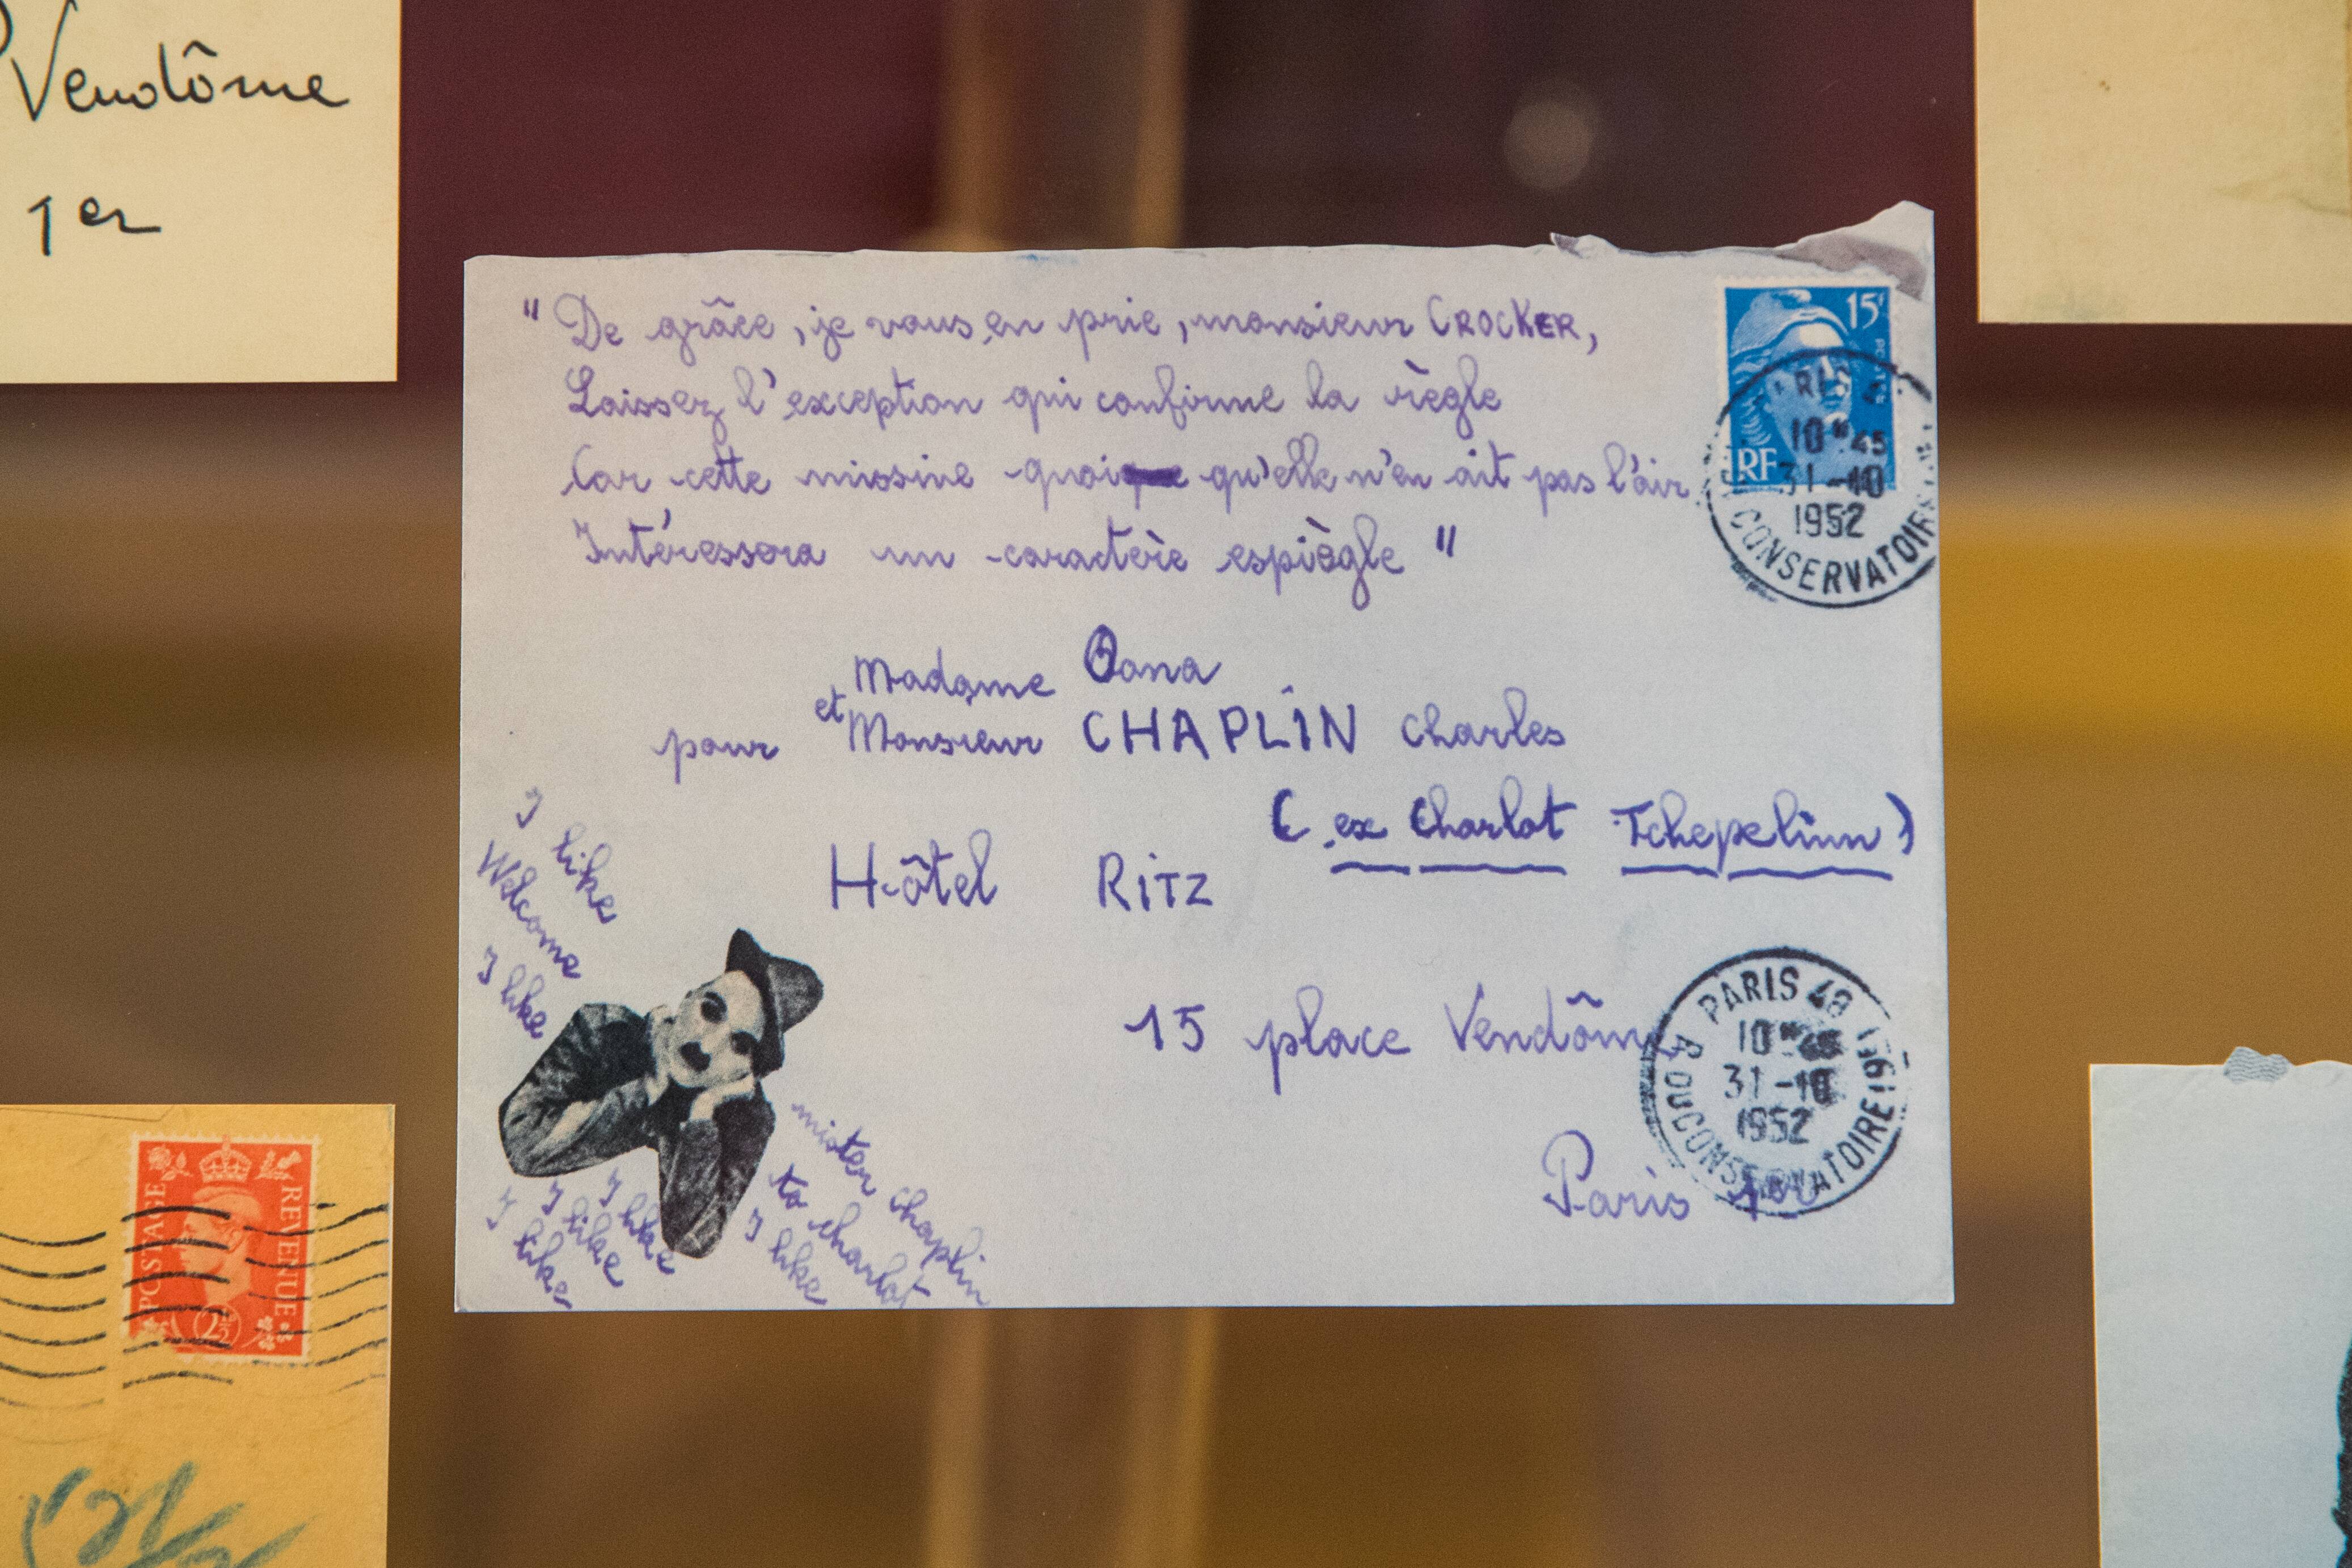 Vendôme
1er
" De grâce, je vous en prie, monsieur CROCKER,
Laissez l'exception qui confirme la règle
Car cette missive quoi qu'elle n'en ait pas l'air
Intéressera un caractère espiègle "
15f
POSTES
RF
10H45
31-10
1952
CONSERVATOIRE
Madame Oona
et
pour Monsieur CHAPLIN Charles
( ex Charlot Tchepelinn )
Hôtel RiTZ
15 place Vendôme
Paris 1er
PARIS 48
10H45
31-10
1952
R. DU CONSERVATOIRE
I like
Welcome
I like
mister chaplin
to charlot
I like
I like
I like
I like
POSTAGE
REVENUE
2½